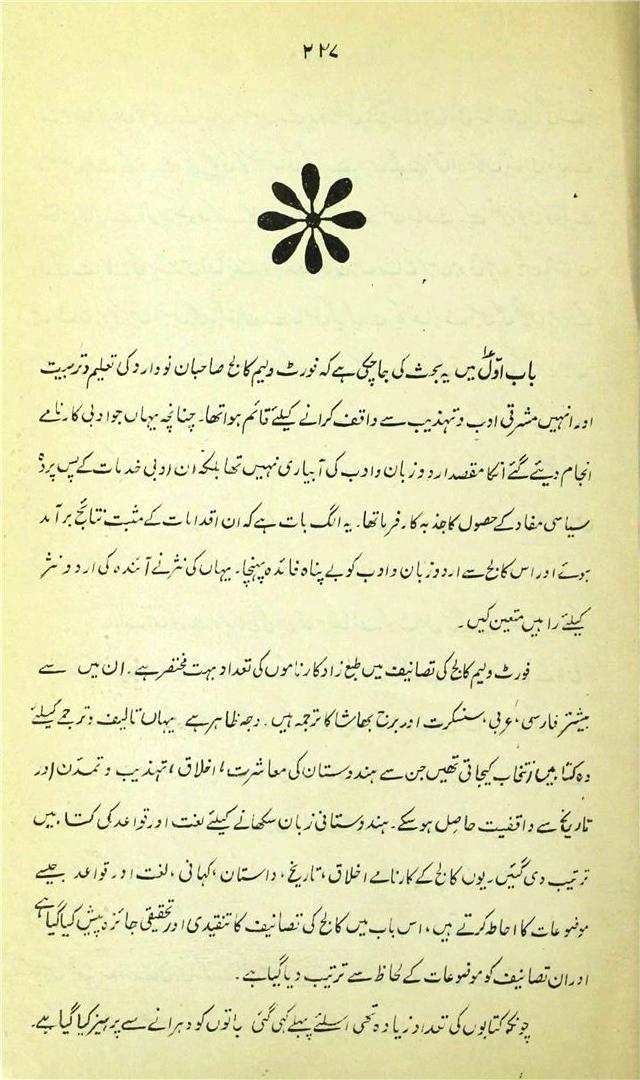 ۲۲۷
باب اوّل میں یہ بحث کی جاچکی ہے کہ فورٹ ولیم کالج صاحبان نووارد کی تعلیم و تربیت
اور انہیں مشرقی ادب و تہذیب سے واقف کرانے کیلئے قائم ہوا تھا۔ چنانچہ یہاں جو ادبی کارنامے
انجام دیئے گئے انکا مقصد اردو زبان و ادب کی آبیاری نہیں تھا بلکہ ان ادبی خدمات کے پس پردہ
سیاسی مفاد کے حصول کا جذبہ کارفرما تھا۔ یہ الگ بات ہے کہ ان اقدامات کے مثبت نتائج برآمد
ہوئے اور اس کالج سے اردو زبان و ادب کو بے پناہ فائدہ پہنچا۔ یہاں کی نثر نے آئندہ کی اردو نثر
کیلئے راہیں متعین کیں۔
فورٹ ولیم کالج کی تصانیف میں طبع زاد کارناموں کی تعداد بہت مختصر ہے۔ ان میں سے
بیشتر فارسی، عربی، سنسکرت اور برج بھاشا کا ترجمہ ہیں۔ وجہ ظاہر ہے یہاں تالیف و ترجمے کیلئے
وہ کتابیں انتخاب کیجاتی تھیں جن سے ہندوستان کی معاشرت، اخلاق، تہذیب و تمدّن اور
تاریخ سے واقفیت حاصل ہوسکے۔ ہندوستانی زبان سکھانے کیلئے لغت اور قواعد کی کتابیں
ترتیب دی گئیں۔ یوں کالج کے کارنامے اخلاق، تاریخ، داستان، کہانی، لغت اور قواعد جیسے
موضوعات کا احاطہ کرتے ہیں، اس باب میں کالج کی تصانیف کا تنقیدی اور تحقیقی جائزہ پیش کیا گیا ہے
اور ان تصانیف کو موضوعات کے لحاظ سے ترتیب دیا گیا ہے۔
چونکہ کتابوں کی تعداد زیادہ تھی اسلئے پہلے کہی گئی باتوں کو دہرانے سے پرہیز کیا گیا ہے۔